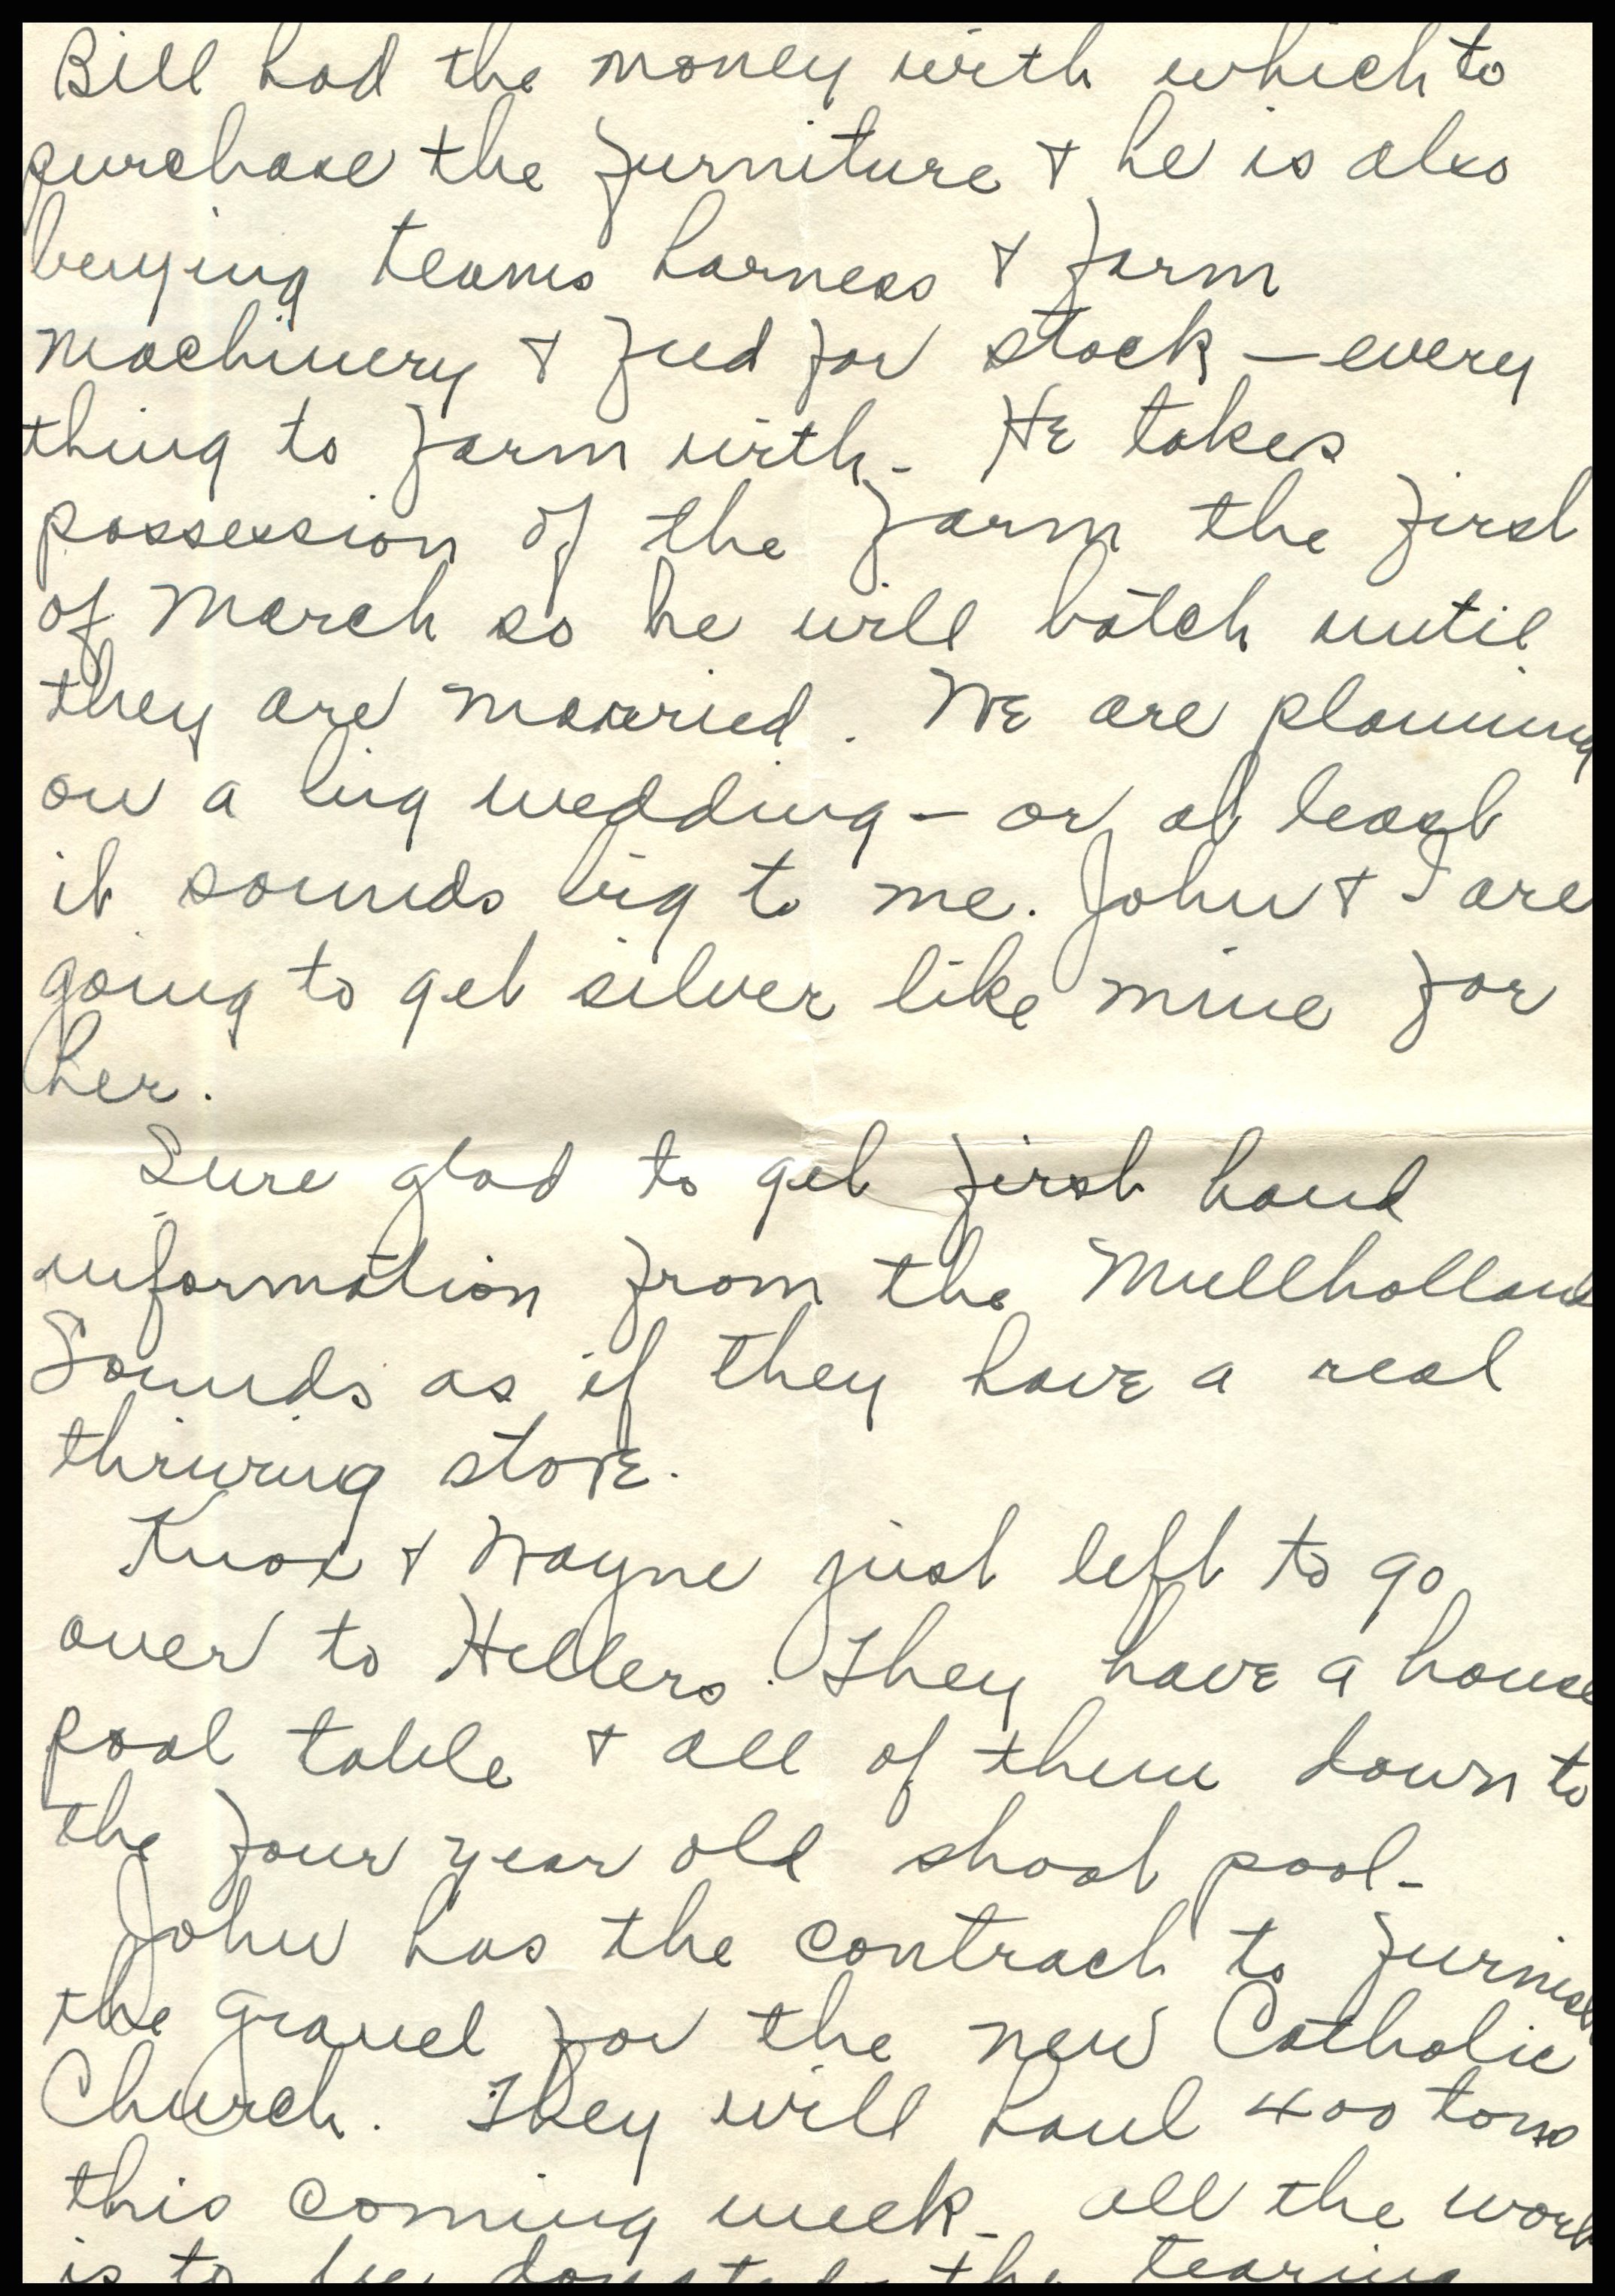 Bill had the money with which to
purchase the furniture + he is also
buying teams harness + farm
machinery + feed for stock – every
thing to farm with – He takes
possession of the farm the first
of March so he will batch until
they are married. We are planning
on a big wedding – or at least
it sounds big to me. John + I are
going to get silver like mine for
her.
Sure glad to get first hand
information from the Mullholland
Sounds as if they have a real
thriving store.
Knox + Wayne just left to go
over to Hillers. They have a house
pool table + all of them down to
the four year old shoot pool –
John has the contract to furnish
the gravel for the new Catholic
Church. They will haul 400 tons
this coming week – all the work
is to be donated – the tearing